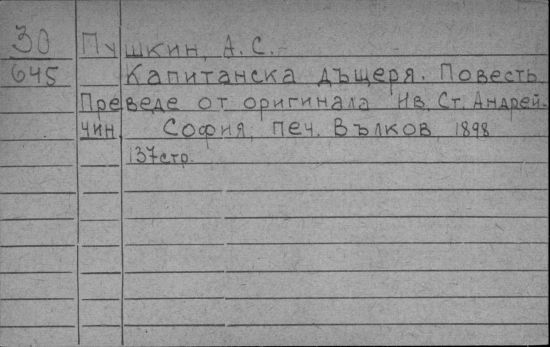 30 Пушкин, А. С.
645 Капитанска дъщеря. Повесть
Преведе от оригинала Ив. Ст. Андрей-
чин. София, печ. Вълков, 1898
137 стр.